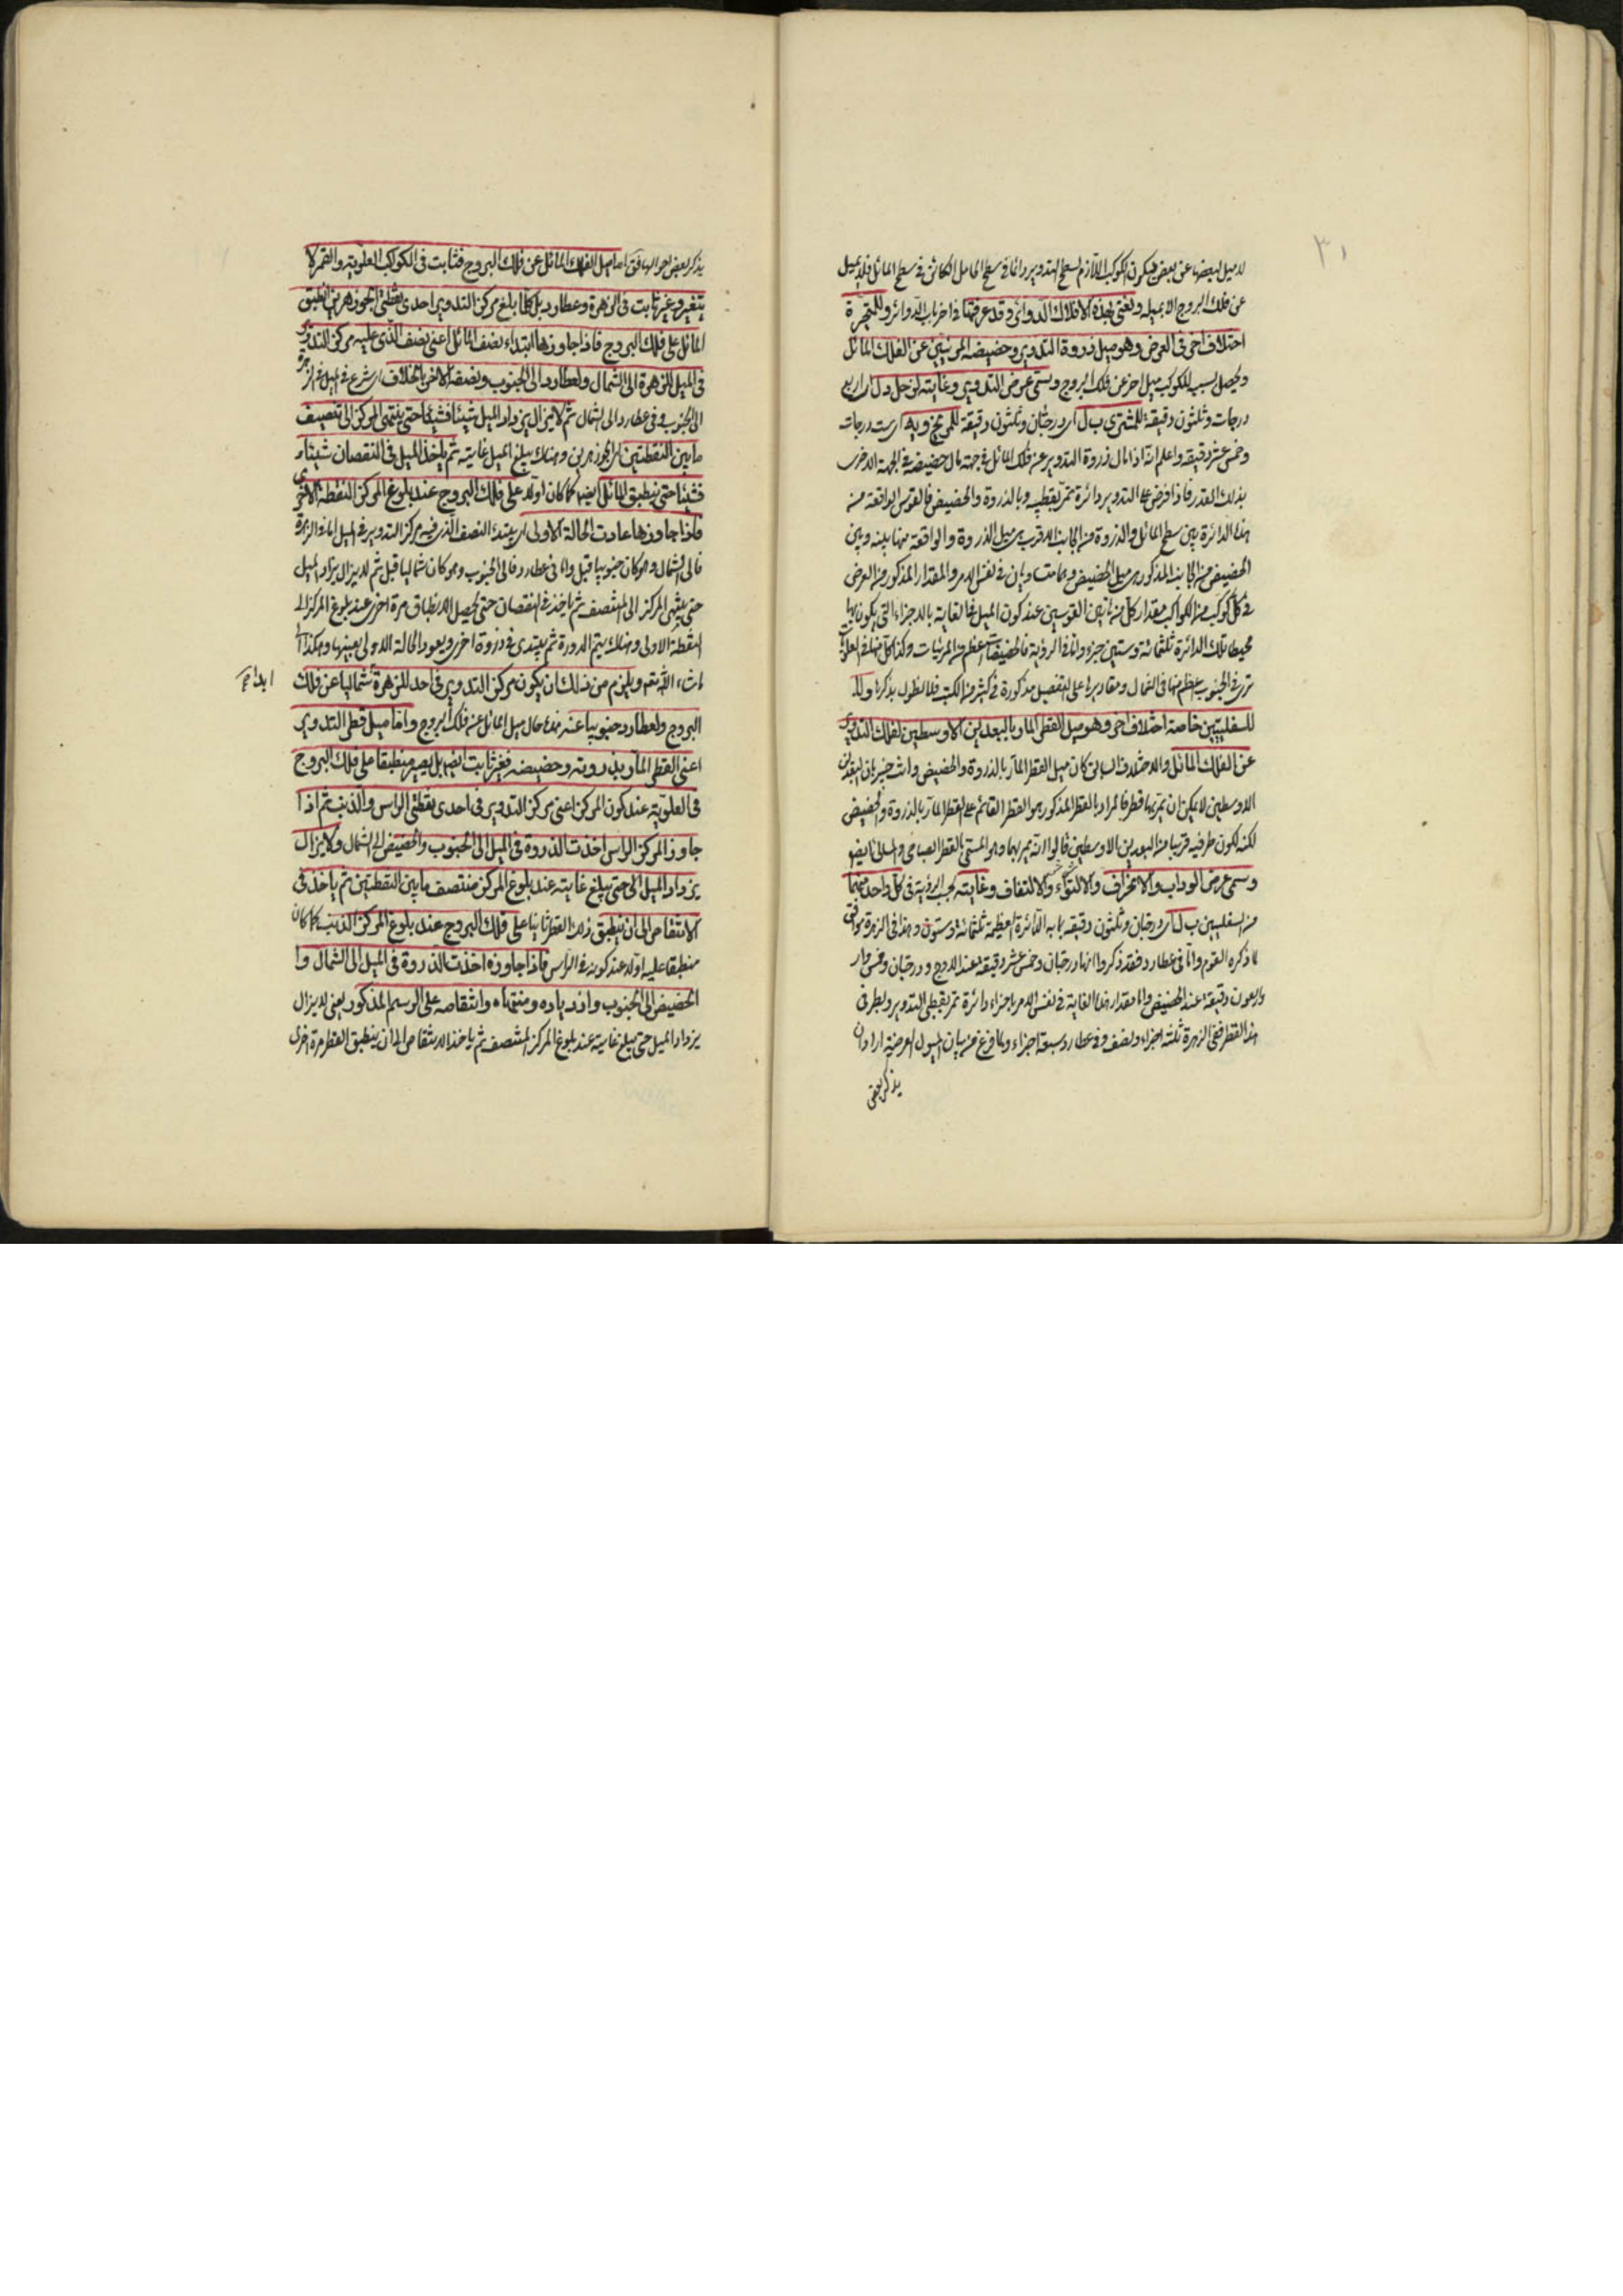 ٣١
لا ميل لبعضها عن بعض فيكون الكوكب اللازم لسطح التدوير دائما في سطح الحامل الكائن في سطح المائل فلا يميل
عن فلك البروج الا بميله ونعني بهذه الافلاك الدوائر وقد عرفتها في اخر باب الدوائر وللمتحيرة
اختلاف اخر في العرض وهو ميل ذروة التدوير وحضيضه المرئيين عن الفلك المائل
ويحصل بسببه للكوكب ميل اخر عن فلك البروج ويسمى عرض التدوير وغايته لزحل د ل اي اربع
درجات وثلثون دقيقة للمشتري ب ل اي درجتان وثلثون دقيقة للمريخ و يه اي ست درجات
وخمس عشر دقيقة واعلم انه اذا مال ذروة التدوير عن فلك المائل في جهة مال حضيضه في الجهة الاخرى
بذلك القدر فاذا فرض على التدوير دائرة تمر بقطبيه وبالذروة والحضيض فالقوس الواقعة من
هذه الدائرة بين سطح المائل والذروة من الجانب الاقرب هي ميل الذروة والواقعة منها بينه وبين
الحضيض من الجانب المذكور هي ميل الحضيض وهما متساويان في نفس الامر والمقدار المذكور من العرض
في كل كوكب من الكواكب مقدار كل من هاتين القوسين عند كون الميل في الغاية بالاجزاء التي يكون بها
محيط تلك الدائرة ثلثمائة وستين جزء واما في الرؤية فالحضيضات اعظم من المرئيات وكذا كل منها في العلوية
ترى في الجنوب اعظم منها في الشمال ومقاديرها على التفصيل مذكورة في كثير من الكتب فلا نطول بذكرها ولا
للسفليين خاصة اختلاف اخر وهو ميل القطر المار بالبعدين الاوسطين لفلك التدوير
عن الفلك المائل والاختلاف السابق كان ميل القطر المار بالذروة والحضيض وانت خبير بان البعدين
الاوسطين لا يمكن ان يمر بهما قطر فالمراد بالقطر المذكور هو القطر القائم على القطر المار بالذروة والحضيض
لكنه لكون طرفيه قريبا من البعدين الاوسطين قالوا انه يمر بهما وهو المسمى بالقطر الصباحي والمسائي ايضا
وسمى عرض الوراب والانحراف والالتواء والالتفاف وغايته بحسب الرؤية في كل واحد منهما
من السفليين ب ل اي درجتان وثلثون دقيقة بما به الدائرة العظيمة ثلثمائة وستون وهذا في الزهرة موافق
لما ذكره القوم واما في عطارد فقد ذكروا انها درجتان وخمس عشر دقيقة عند الاوج ودرجتان وخمس و
واربعون دقيقة عند الحضيض واما مقدار هذا الغاية في نفس الامر باجزاء دائرة تمر بقطبي التدوير وبطرفي
هذا القطر ففي الزهرة ثلثة اجزاء ونصف وفي عطارد سبعة اجزاء ولما فرغ من بيان الميول العرضية اراد ان
يذكر بعض
يذكر بعض احوالها فق اما ميل الفلك المائل عن فلك البروج فثابت في الكواكب العلوية والقمر لا
يتغير وغير ثابت في الزهرة وعطارد بل كلما بلغ مركز التدوير احدى نقطتي الجوزهرين انطبق
المائل على فلك البروج فاذا جاوزها ابتداء نصف المائل اعني نصف الذي عليه مركز التدوير
في الميل للزهرة الى الشمال ولعطارد الى الجنوب ونصفه الاخر بالخلاف اي شرع في الميل في الزهرة
الى الجنوب وفي عطارد الى الشمال ثم لا يزال يزداد الميل شيئا فشيئا حتى ينتهي المركز الى تنصيف
ما بين النقطتين اي الجوزهرين وهناك يبلغ الميل غايته ثم ياخذ الميل في النقصان شيئا
فشيئا حتى ينطبق المائل ايضا كما كان اولا على فلك البروج عند بلوغ المركز النقطة الاخرى
فاذا جاوزها عادت الحالة الاولى اي يبتدئ النصف الذي فيه مركز التدوير في الميل اما في الزهرة
فالى الشمال وهو كان جنوبيا قبل واما في عطارد فالى الجنوب وهو كان شماليا قبل ثم لا يزال يزداد الميل
حتى ينتهي المركز الى المنتصف ثم ياخذ في النقصان حتى يحصل الانطباق مرة اخرى عند بلوغ المركز الى
النقطة الاولى وهناك يتم الدورة ثم يبتدئ في دورة اخرى ويعود الحالة الاولى بعينها وهكذا الى
ما شاء الله تعه ويلزم من ذلك ان يكون مركز التدوير في احد للزهرة شماليا عن فلك
ابدا صح
البروج ولعطارد جنوبيا عنه هذه حال ميل المائل عن فلك البروج واما ميل قطر التدوير
اعني القطر المار بذروته وحضيضه فغير ثابت ايضا بل يصير منطبقا على فلك البروج
في العلوية عند كون المركز اعني مركز التدوير في احدى نقطتي الراس والذنب ثم اذا
جاوز المركز الراس اخذت الذروة في الميل الى الجنوب والحضيض الى الشمال ولا يزال
يزداد الميل الى حتى يبلغ غايته عند بلوغ المركز منتصف ما بين النقطتين ثم ياخذ في
الانتقاص الى ان ينطبق ذلك القطر ثانيا على فلك البروج عند بلوغ المركز الذنب كما كان
منطبقا عليه اولا عند كونه في الراس فاذا جاوزه اخذت الذروة في الميل الى الشمال وا
الحضيض الى الجنوب وازدياده ومنتهاه وانتقاصه على الرسم المذكور يعني لا يزال
يزداد الميل حتى يبلغ غايته عند بلوغ المركز المنتصف ثم ياخذ الانتقاص الى ان ينطبق القطر مرة اخرى